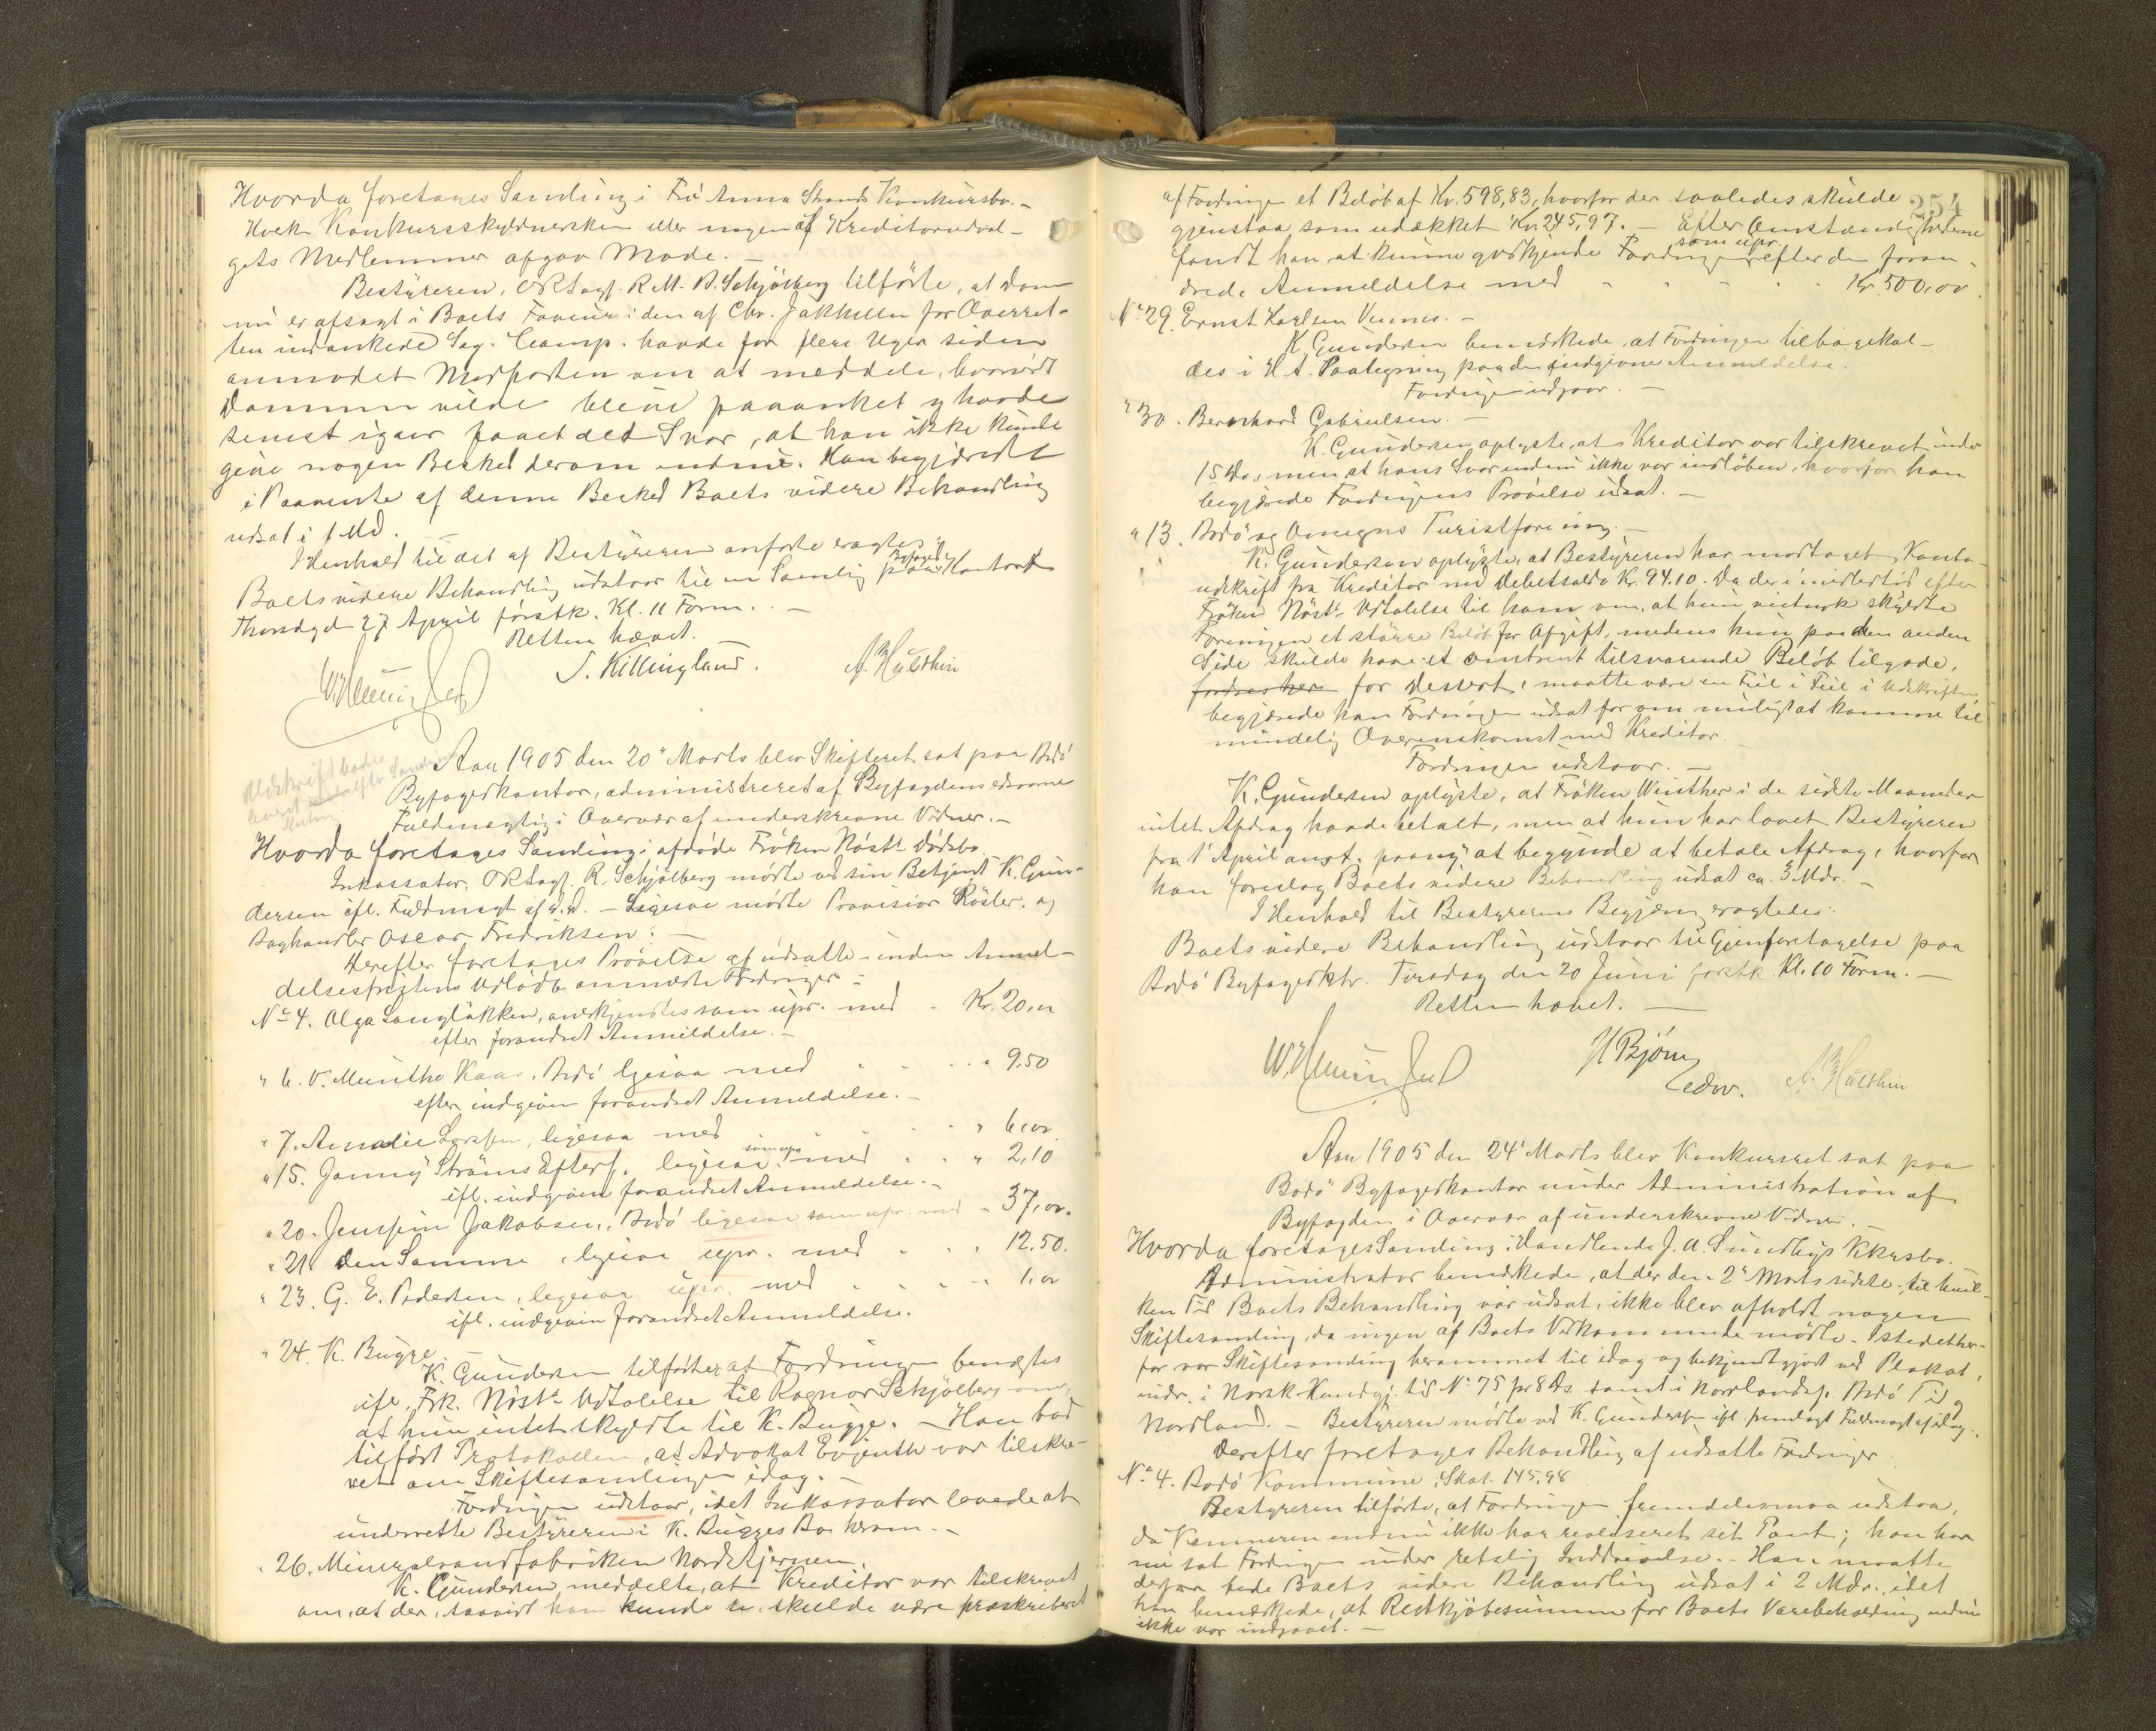 Hvorda foretages Samling i Fru Anna Strands Konkursbo.-
Hverken Konkursskyldnersken eller nogen af Kreditorudval-
gets Medlemmer afgav Møde.-
Bestyreren, ORSagf. R. M. B. Schjølberg tilførte, at Dom
nu er afsagt i Boets Faveur i den af Chr. Jakhelln for Overret-
ten indankede Sag. Comp. havde for flere Uger siden
anmodet Modparten om at meddele, hvorvidt
Dommen vilde blive paaanket og havde
senest igaar faaet det Svar, at han ikke kunde
give nogen Besked derom endnu. Han begjærede
i Paavente af denne Besked Boets videre Behandling
udsat i 1 Md.
I Henhold til det af Bestyreren anførte eragtes:
Boets videre Behandling udstaar til en Samling paa Byfoged Kontoret
Thorsdag d 27 April førstk. Kl. 11 Form. -
Retten hævet.
S. Killingland. A. Hulthin
Udskrift
Aar 1905 den 20' Marts blev Skifteret sat paa Bodø
Byfogedkontor, administreret af Byfogdens edsvorne
Fuldmægtig i Overvær af underskrevne Vidner.-
Hvorda foretages Samling i afdøde Frøken Nøsts Dødsbo.
Inkassator, ORSagf. R. Schjølberg mødte ved sin Betjent K. Gun-
dersen ifl. Fuldmagt af d.d. - Ligesaa mødte Provisor Røsler og
Boghandler Oscar Fredriksen. -
Herefter foretages Prøvelse af udsatte inden Anmel-
delsesfristens Udløb anmeldte Fordringer:
No 4. Olga Langløkken, anerkjendtes som upr. med - Kr. 20,00
efter forandret Anmeldelse.-
" 6. V. Munthe Kaas, Bodø ligesaa med " 9,50
efter indgiven forandret Anmeldelse.-
" 7. Amalie Larsen, ligesaa med " 6,00
" 15. Janny Strøms Efterf. ligesaa som upr med " 2,10
ifl. indgiven forandret Anmeldelse.-
" 20. Jensine Jakobsen, Bodø ligesaa som upr. med " 37,00.
" 21 den Samme, ligesaa upr. med " 12,50.
" 23. G. E. Pedersen, ligesaa upr. med " 1,00
ifl. indgiven forandret Anmeldelse.
" 24. K. Bugge.
K. Gundersen tilførte, at Fordringen benægtes
ifl. Frk. Nøsts Udtalelse til Ragnar Schjølberg om,
at hun intet skyldte til K. Bugge. - Han bad
tilført Protokollen, at Advokat Evjenth var tilskre-
vet om Skiftesamlingen idag.-
Fordringen udstaar, idet Inkassator lovede at
underrette Bestyreren i K. Bugges Bo herom.-
" 26. Mineralvandfabriken Nordstjernen.
K. Gundersen meddelte, at Kreditor var tilskrevet
om, at der, saavidt han kunde se, skulde være præskriberet
254
af Fordringen et Beløb af Kr. 598,83, hvorfor der saaledes skulde
gjenstaa som udækket Kr. 245,97. - Efter Omstændighederne
fandt han at kunne godkjende Fordringen som upr. efter den foran-
drede Anmeldelse med - - - Kr. 500,00.
No 29. Ernst Karlsen Vennes.-
K. Gundersen bemærkede, at Fordringen tilbagekal-
des i H. t. Paategning paa den indgivne Anmeldelse.
Fordringen udgaar.-
" 30. Bernhard Gabrielsen.-
K. Gundersen oplyste, at Kreditor var tilskrevet under
15 Ds., men at hans Svar endnu ikke var indløben, hvorfor han
begjærede Fordringens Prøvelse udsat.-
" 13. Bodø og Omegns Turistforening.-
K. Gundersen oplyste, at Bestyreren har modtaget Konto-
udskrift fra Kreditor med Debetsaldo Kr. 94.10. Da der imidlertid efter
Frøken Nøsts Udtalelse til ham om, at hun vistnok skyldte
Foreningen et større Beløb for Afgift, medens hun paa den anden
Side skulde have et omtrent tilsvarende Beløb tilgode,
for Dessert, maatte være en Feil i Feil i Udskriften
begjærede han Fordringen udsat for om muligt at komme til
mindelig Overenskomst med Kreditor.
Fordringen udstaar.-
K. Gundersen oplyste, at Frøken Winther i de sidste Maaneder
intet Afdrag havde betalt, men at hun har lovet Bestyreren
fra 1' April anst. paany at begynde at betale Afdrag, hvorfor
han foreslog Boets videre Behandling udsat ca. 3 Mdr.-
I Henhold til Bestyrerens Begjæring eragtedes:
Boets videre Behandling udstaar til Gjenforetagelse paa
Bodø Byfogedktr. Tirsdag den 20 Juni førstk. Kl. 10 Form.-
Retten hævet.-
H Bjørn
edsv. A. Hulthin
Aar 1905 den 24' Marts blev Konkursret sat paa
Bodø Byfogedkontor under Administration af
Byfogden i Overvær af underskrevne Vidner.-
Hvorda foretages Samling i Handlende J. A. Sundbys Kkursbo.
Administrator bemærkede, at der den 2' Marts sidstl., til hvil-
ken Tid Boets Behandling var udsat, ikke blev afholdt nogen
Skiftesamling, da ingen af Boets Vedkommende mødte. Istedether-
for var Skiftesamling berammet til idag og bekjendtgjort ved Plakat,
indr. i Norsk Kundgj. tid. No 75 pr 8 ds. samt i Nordlandsp. Bodø Tid og
Nordland. - Bestyreren mødte ved K. Gundersen ifl. fremlagt Fuldmagt af idag.
Derefter foretages Behandling af udsatte Fordringer.
No 4. Bodø Kommune, Skat. 145,98
Bestyreren tilførte, at Fordringen fremdeles maa udstaa,
da Kemneren endnu ikke har realiseret sit Pant; han har
nu sat Fordringen under retslig Inddrivelse.- Han maatte
derfor bede Boets videre Behandling udsat i 2 Mdr., idet
han bemærkede, at Restkjøbesummen for Boets Varebeholdning endnu
ikke var indgaaet.-